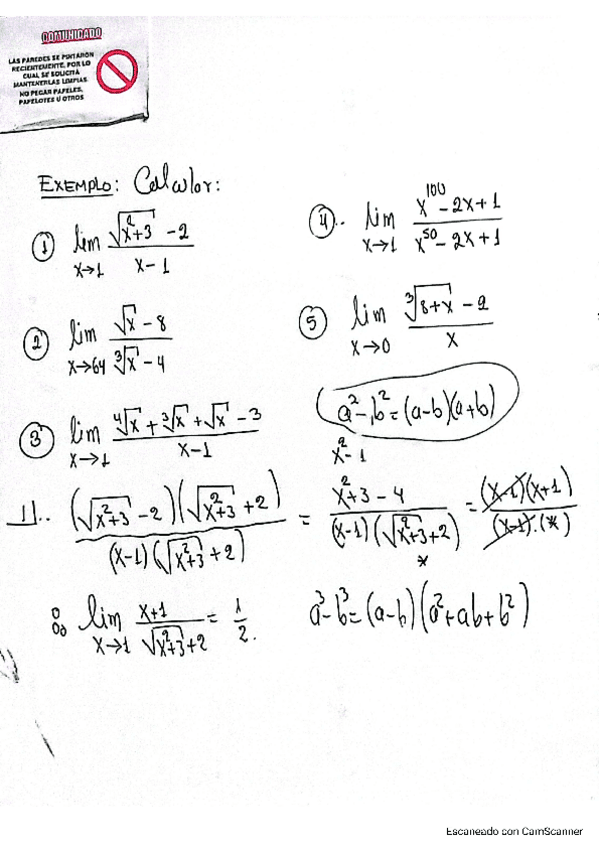 COMUNICADO
LAS PAREDES SE PINTARON
RECIENTEMENTE, POR LO
CUAL SE SOLICITA
MANTENERLAS LIMPIAS.
NO PEGAR PAPELES,
PAPELOTES U OTROS
EXEMPLO: Calcular:
① lim x→1 (√(x²+3) - 2)/(x-1)
② lim x→64 (√x - 8)/(∛x - 4)
③ lim x→1 (∜x + ∛x + √x - 3)/(x-1)
④.. lim x→1 (x¹⁰⁰ - 2x + 1)/(x⁵⁰ - 2x + 1)
⑤ lim x→0 (∛(8+x) - 2)/x
a² - b² = (a-b)(a+b)
x² - 1
1.. (√(x²+3) - 2)(√(x²+3) + 2)/((x-1)(√(x²+3) + 2)) = (x²+3-4)/((x-1)(√(x²+3)+2)) = (x-1)(x+1)/((x-1).(*))
*
∴ lim x→1 (x+1)/(√(x²+3)+2) = 1/2.
a³ - b³ = (a-b)(a²+ab+b²)
Escaneado con CamScanner